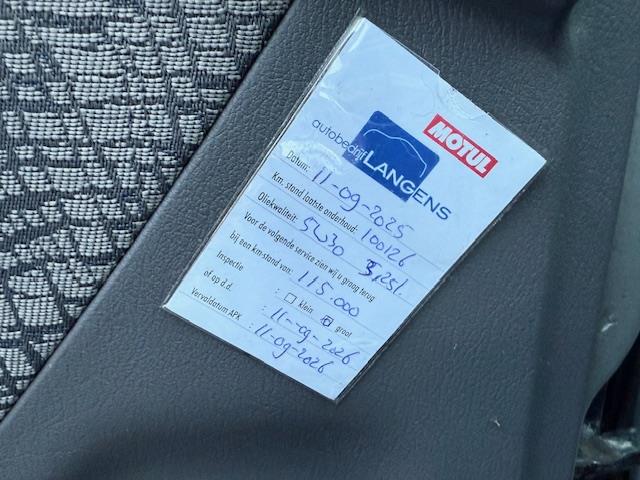 MOTUL
autobedrijf LANGENS
Datum: 11-09-2025
Km. stand laatste onderhoud: 100126
Oliekwaliteit: 5W30 3,25l.
Voor de volgende service zien wij u graag terug
bij een km-stand van: 115.000
Inspectie : klein groot
of op d.d. : 11-09-2026
Vervaldatum APK : 11-09-2026